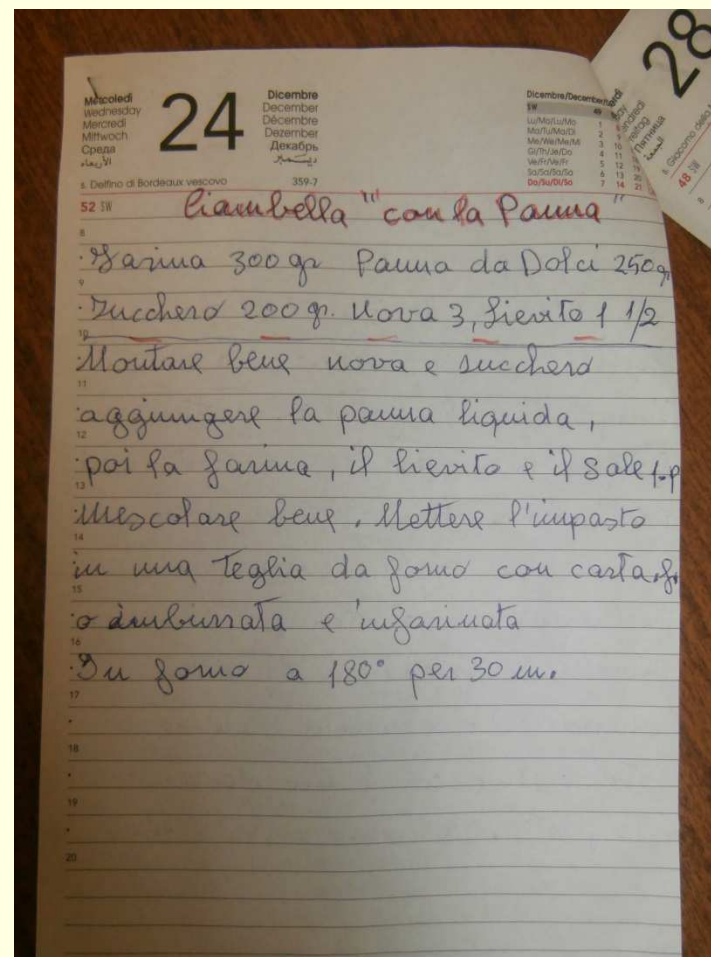 Mercoledì
Wednesday
Mercredi
Mittwoch
Среда
الأربعاء
24
Dicembre
December
Décembre
Dezember
Декабрь
ديسمبر
s. Delfino di Bordeaux vescovo
359-7
Dicembre/December
SW 49
Lu/Mo/Lu/Mo 1
Ma/Tu/Ma/Di 2
Me/We/Me/Mi 3 10
Gi/Th/Je/Do 4 11
Ve/Fr/Ve/Fr 5 12
Sa/Sa/Sa/Sa 6 13 20
Do/Su/Di/So 7 14 21
28
Пятница
s. Giacomo della
48 SW
52 SW
Ciambella "con la Panna"
8
Farina 300 gr Panna da Dolci 250 g
9
Zucchero 200 gr. Uova 3, Lievito 1 1/2
10
Montare bene uova e zucchero
11
aggiungere la panna liquida,
12
poi la farina, il lievito e il sale 1 p
13
Mescolare bene. Mettere l'impasto
14
in una teglia da forno con carta f.
15
o imburrata e infarinata
16
In forno a 180° per 30 m.
17
18
19
20